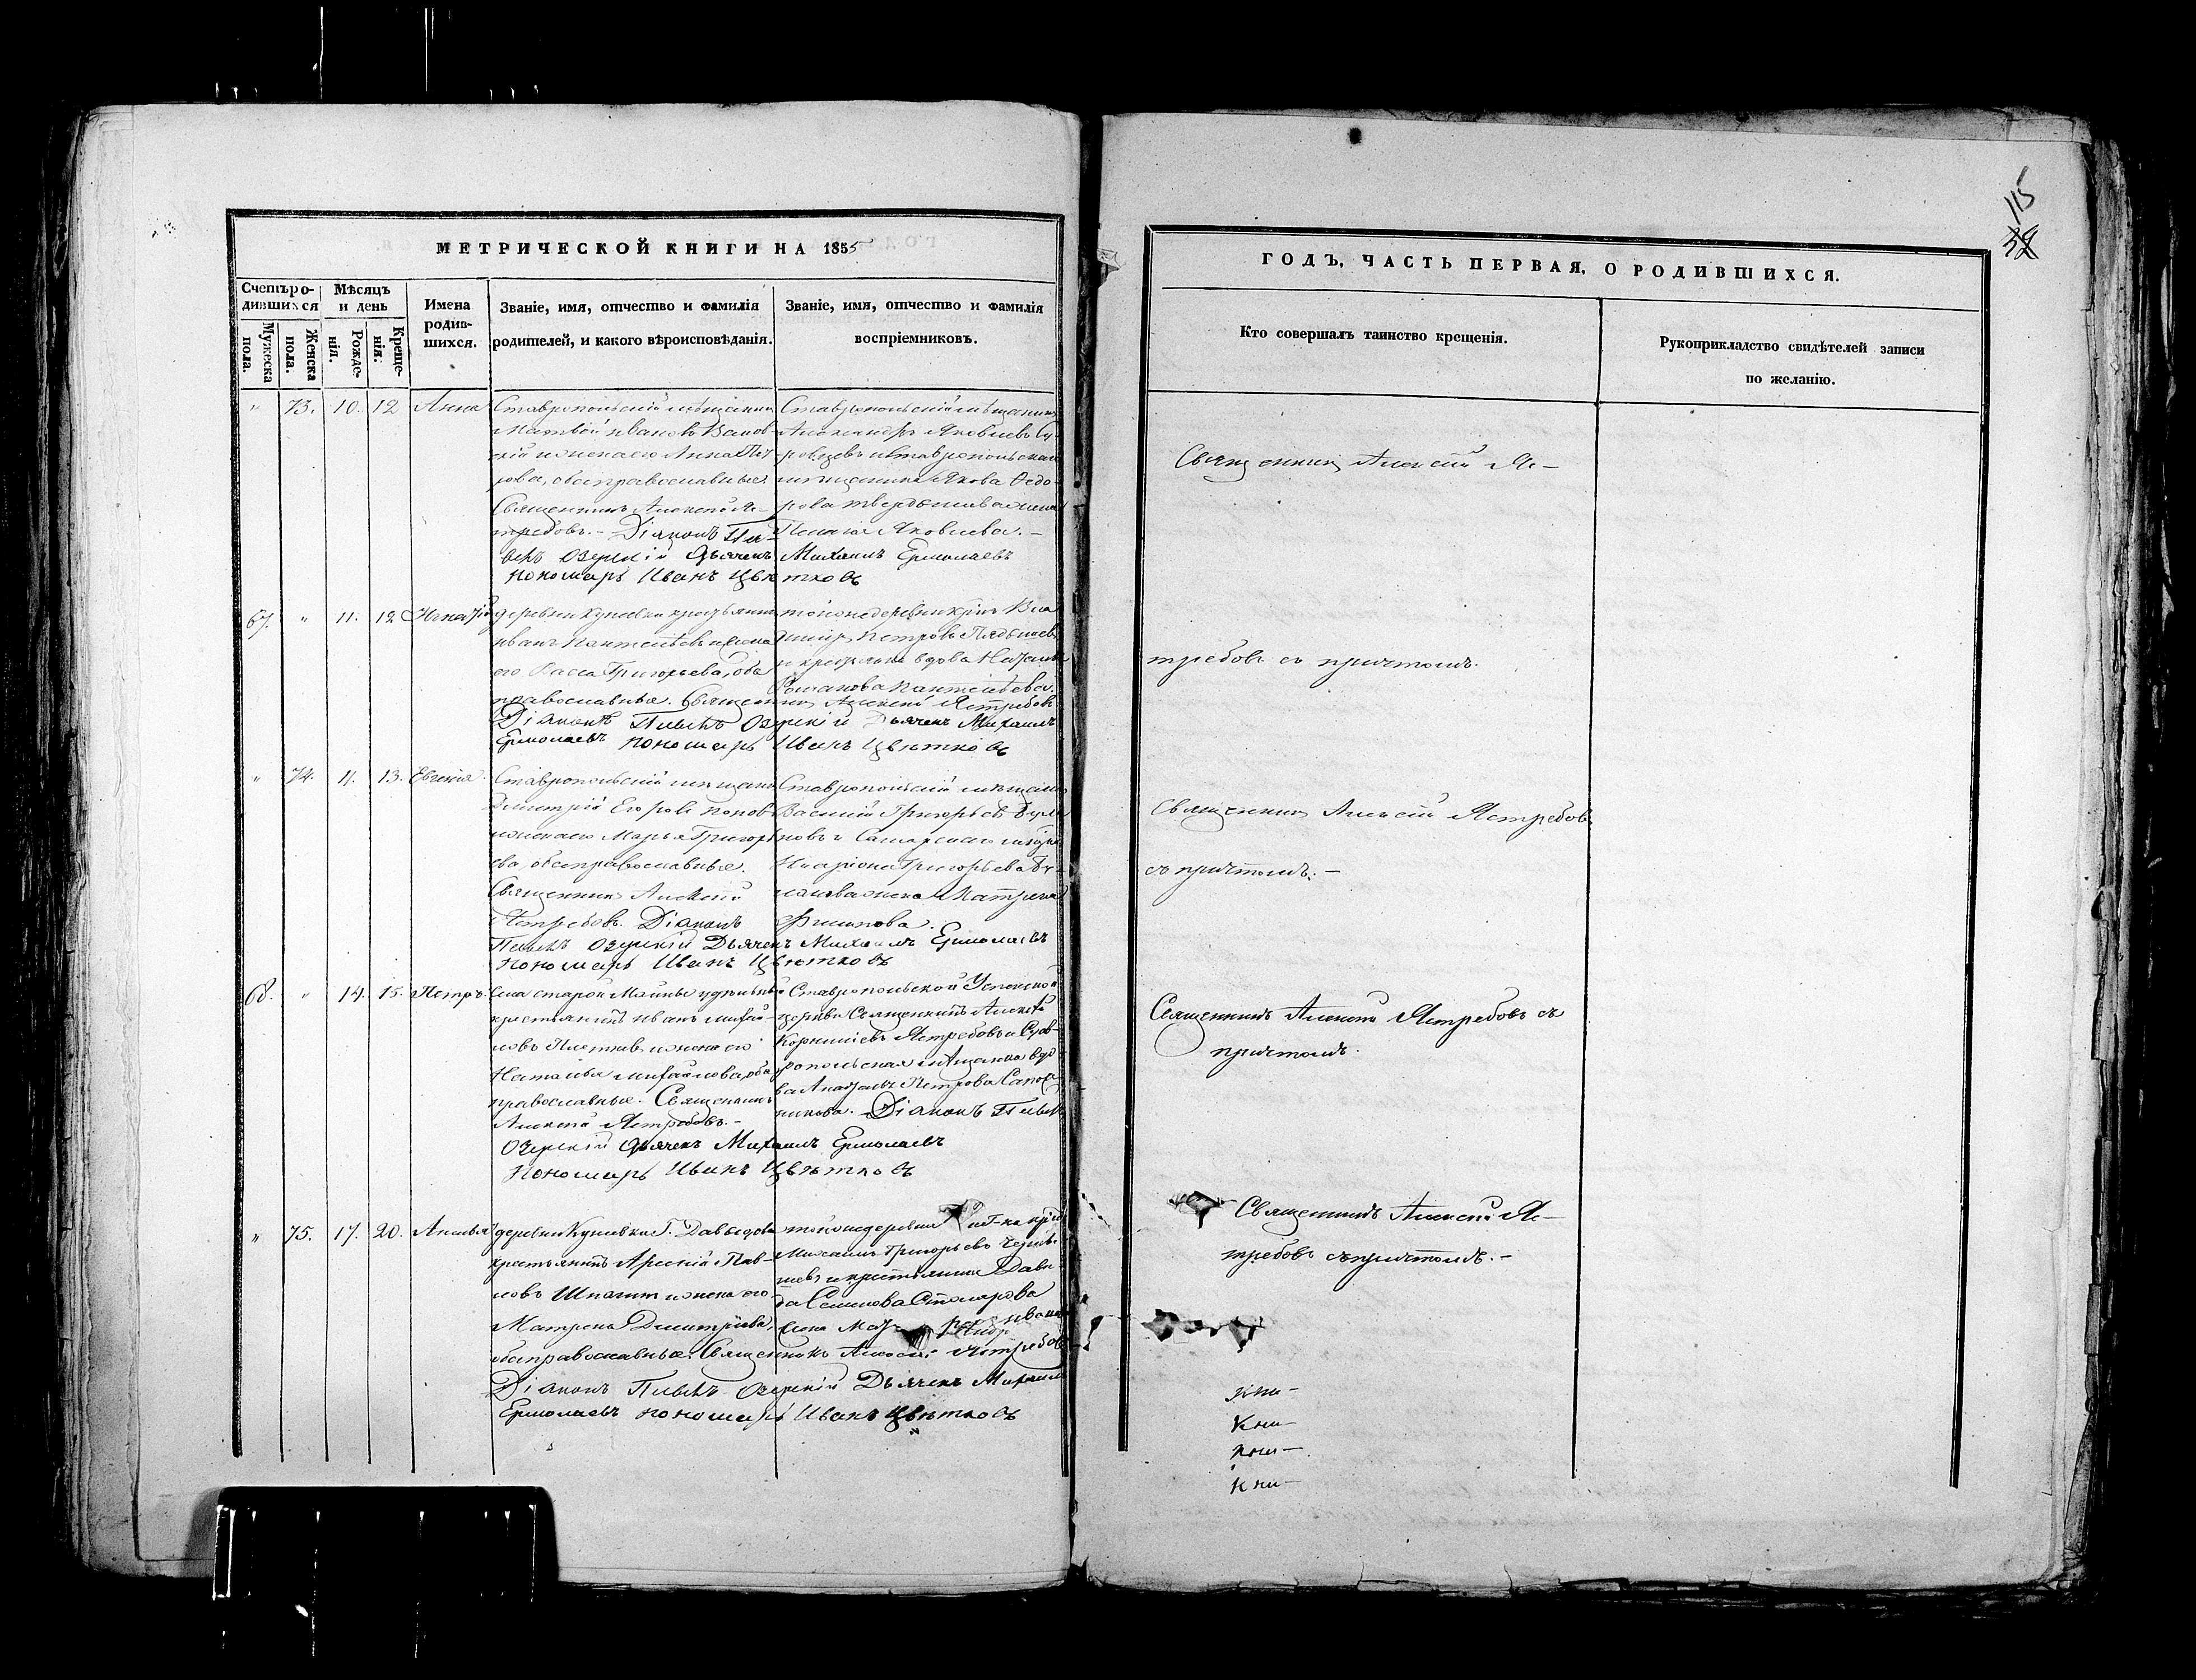 115
32
МЕТРИЧЕСКОЙ КНИГИ НА 1855
ГОДЪ, ЧАСТЬ ПЕРВАЯ, О РОДИВШИХСЯ.
Счетъ ро-
дившихся
Мужеска
пола.
Женска
пола.
Мѣсяцъ
и день
Рожде-
нія.
Креще-
нія.
Имена
родив-
шихся.
Званіе, имя, отчество и фамилія
родителей, и какого вѣроисповѣданія.
Званіе, имя, отчество и фамилія
воспріемниковъ.
Кто совершалъ таинство крещенія.
Рукоприкладство свидѣтелей записи
по желанію.
" 73. 10. 12 Анна
Ставропольскій мѣщанинъ
Матвѣй Ивановъ
и жена его Анна Пет
рова, оба православные
Священникъ Алексѣй Я-
стребовъ. – Діаконъ Па-
велъ Озерскій Дьячекъ Михаилъ Ермолаевъ
Пономарь Иванъ Цвѣтковъ
Ставропольскій мѣщанинъ
Александръ Яковлевъ Су-
ровцевъ и Ставропольскаго
мѣщанина Якова Ѳедо-
рова жена
Пелагія Яковлева. –
Священникъ Алексѣй Я–
стребовъ съ причтомъ.
67. " 11. 12 Игнатій
деревни Кунеевки крестьянинъ
Иванъ Пантелѣевъ и жена
его Васса Григорьева, оба
православные. Священникъ Алексѣй Ястребовъ
Діаконъ Павелъ Озерскій Дьячекъ Михаилъ
Ермолаевъ Пономарь Иванъ Цвѣтковъ
той же деревни крес. Вла
димиръ Петровъ
и крестьянка вдова Наталья
Романова Пантелѣева.
" 74. 11. 13. Евгенія
Ставропольскій мѣщанинъ
Дмитрій Егоровъ Поповъ
и жена его Марья Григорь
ева, оба православные.
Священникъ Алексѣй
Ястребовъ. Діаконъ
Павелъ Озерскій Дьячекъ Михаилъ Ермолаевъ
Пономарь Иванъ Цвѣтковъ
Ставропольскій мѣщанинъ
Василій Григорьевъ
и Самарскаго
Иларіона Григорьева
жена Матрена
Филипова.
Священникъ Алексѣй Ястребовъ
съ причтомъ. –
68. " 14. 15. Петръ.
Села Старой Майны удѣльный
крестьянинъ Иванъ Михай-
ловъ и жена его
Наталья Михайлова, оба
православные. Священникъ
Алексѣй Ястребовъ. –
Озерскій Дьячекъ Михаилъ Ермолаевъ
Пономарь Иванъ Цвѣтковъ
Ставропольской Успенской
церкви Священникъ Алексѣй
Корниліевъ Ястребовъ и Став-
ропольская мѣщанка вдо
ва Петрова Сапож
никова. Діаконъ Павелъ
Священникъ Алексѣй Ястребовъ съ
причтомъ.
" 75. 17. 20.
деревни Кунеевки Г. Давыдова
крестьянинъ Арсеній Пав-
ловъ и жена его
Матрена Дмитріева,
оба православные. Священникъ Алексѣй Ястребовъ
Діаконъ Павелъ Озерскій Дьячекъ Михаилъ
Ермолаевъ Пономарь Иванъ Цвѣтковъ
той же деревни
Михаилъ Григорьевъ
и крестьянина Дави
да Семенова Столярова
жена
Священникъ Алексѣй Я–
стребовъ съ причтомъ. –